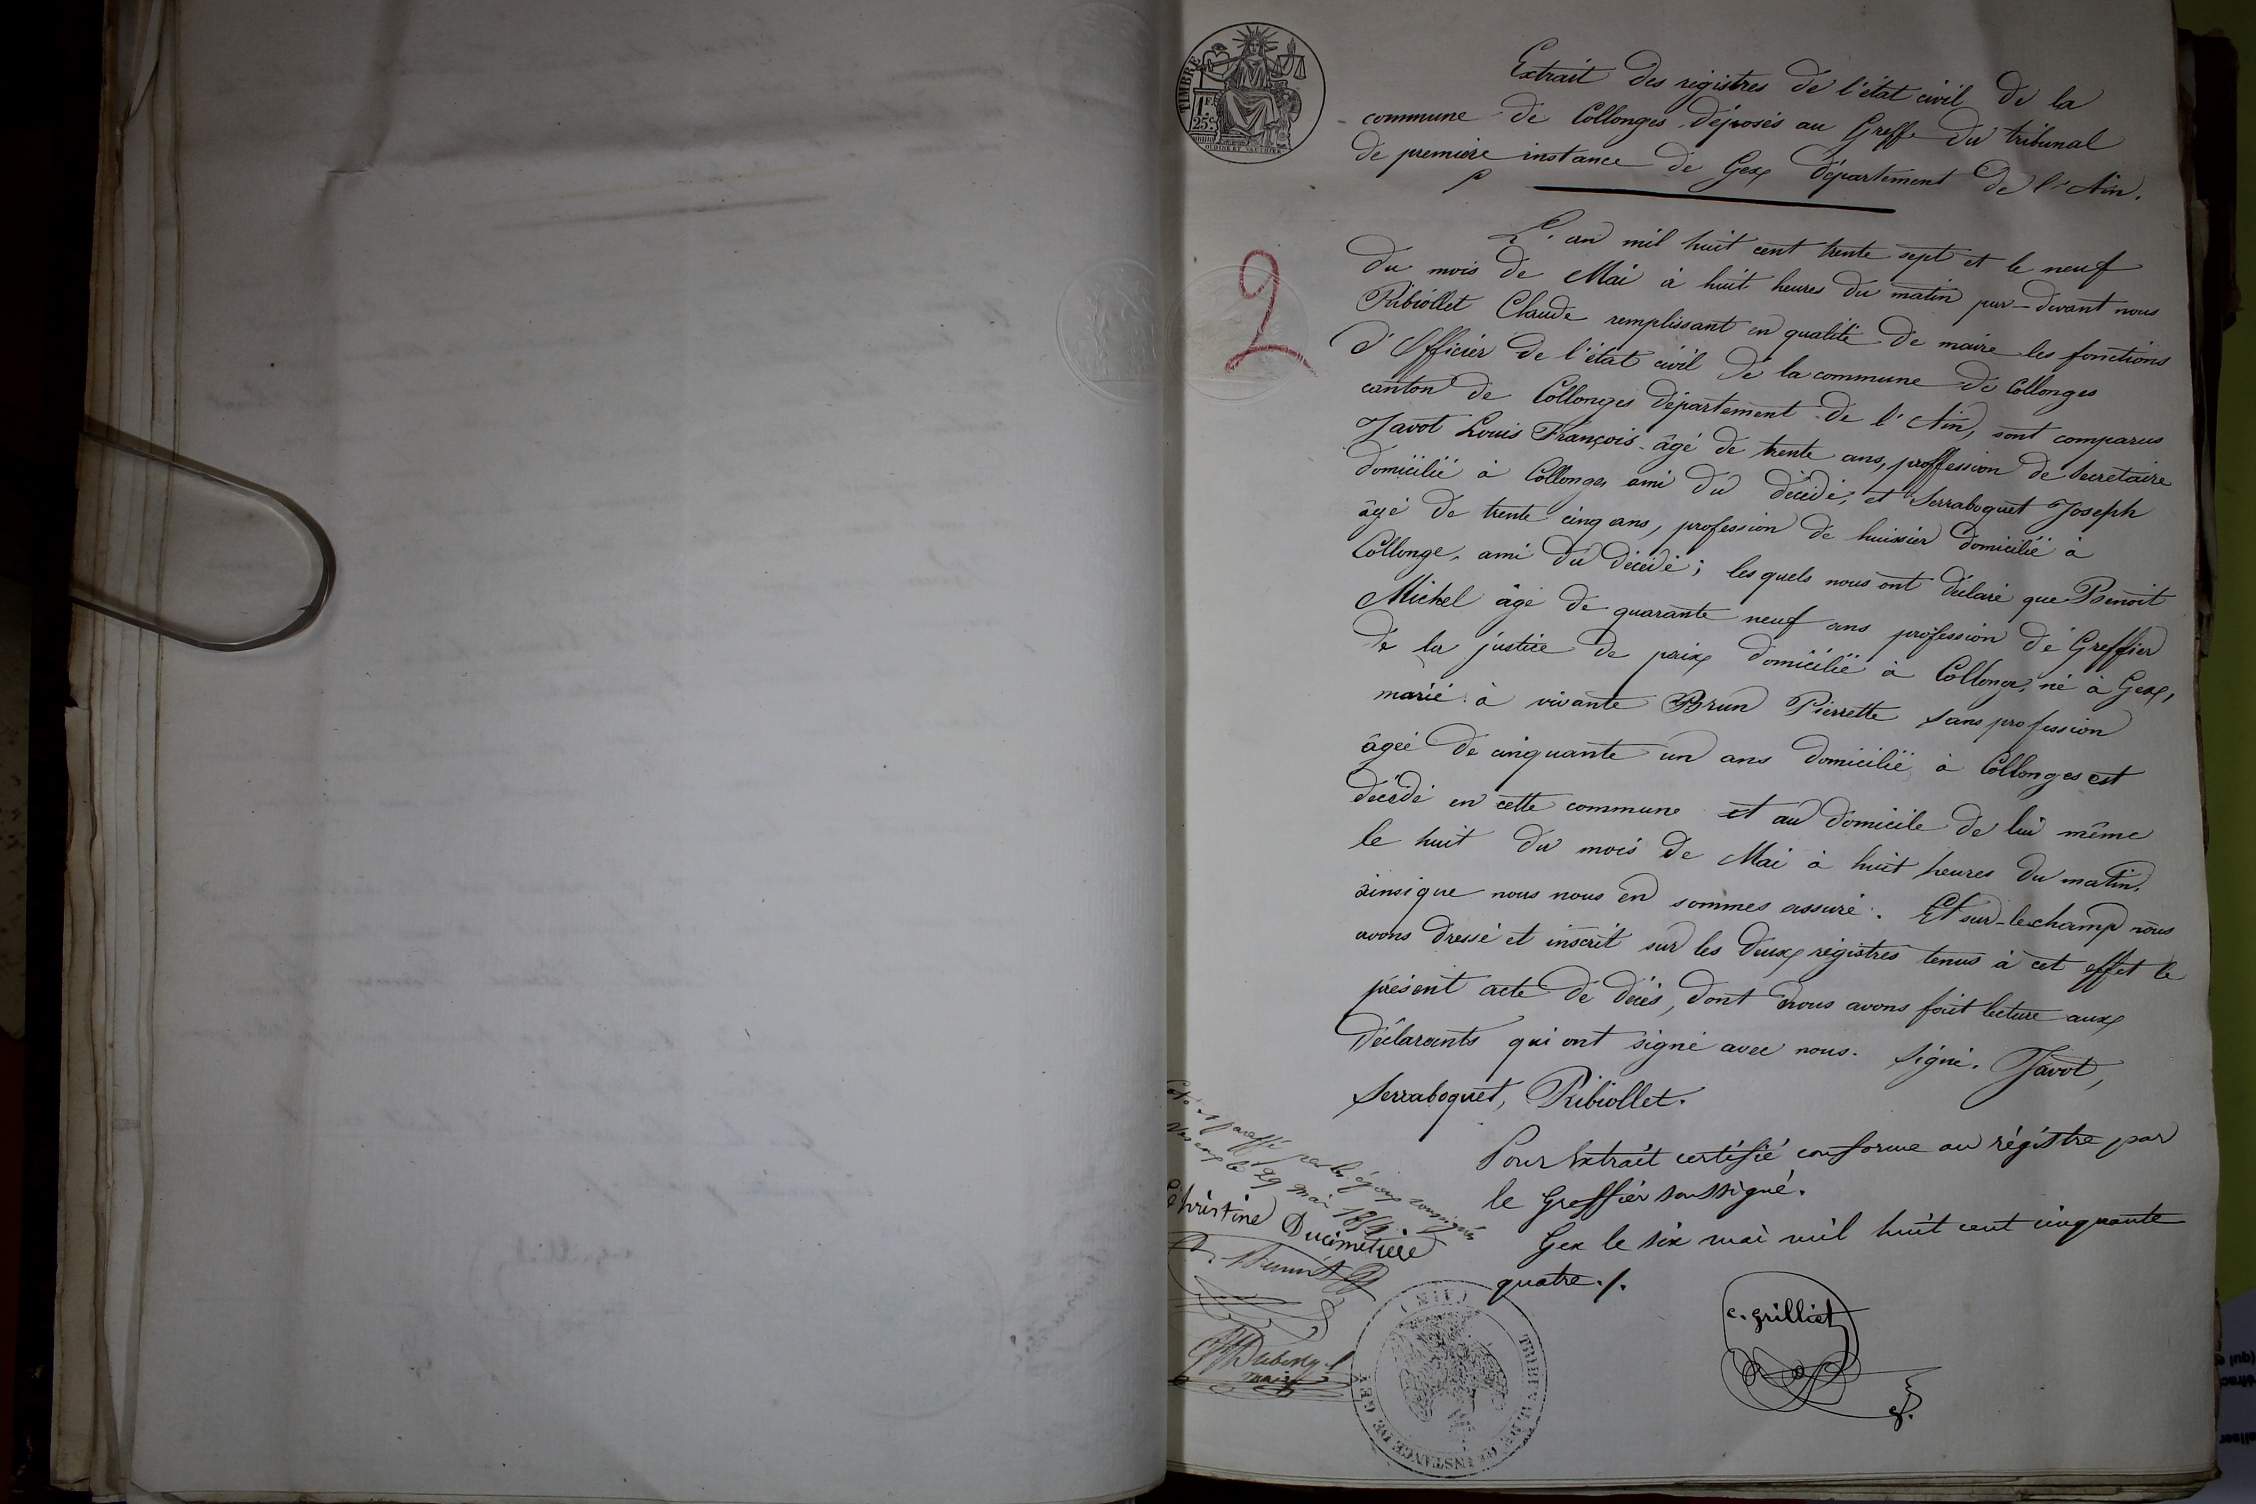 TIMBRE
1 F.
25 c.
Extrait des régistres de l'état civil de la
commune de Collonges déposés au Greffe du tribunal
de première instance de Gex département de l'Ain.
2
L'an mil huit cent trente sept et le neuf
du mois de Mai à huit heures du matin par-devant nous
Ribiollet Claude remplissant en qualité de maire les fonctions
d'Officier de l'état civil de la commune de Collonges
canton de Collonges département de l'Ain, sont comparus
Javot Louis François âgé de trente ans, proffession de secretaire
domicilié à Collonges ami du décédé, et Serraboquet Joseph
âgé de trente cinq ans, profession de huissier domicilié à
Collonge, ami du décédé; lesquels nous ont déclaré que Benoit
Michel âgé de quarante neuf ans profession de Greffier
de la justice de paix domicilié à Collonge, né à Gex,
marié à vivante Brun Pierrette sans profession
âgée de cinquante un ans domicilié à Collonges est
décédé en cette commune et au domicile de lui même
le huit du mois de Mai à huit heures du matin,
ainsi que nous nous en sommes assuré. Et sur-le-champ nous
avons dressé et inscrit sur les deux régistres tenus à cet effet le
présent acte de décès, dont nous avons fait lecture aux
déclarants qui ont signé avec nous. Signé. Javot,
Serraboquet, Ribiollet.
Pour Extrait certifié conforme au régistre par
le Greffier soussigné.
Gex le six mai mil huit cent cinquante
quatre ./.
c. grilliet
paraffé par les époux soussignés
29 mai
Christine Ducimetière
maire
TRIBUNAL DE 1re INSTANCE DE GEX
(AIN)